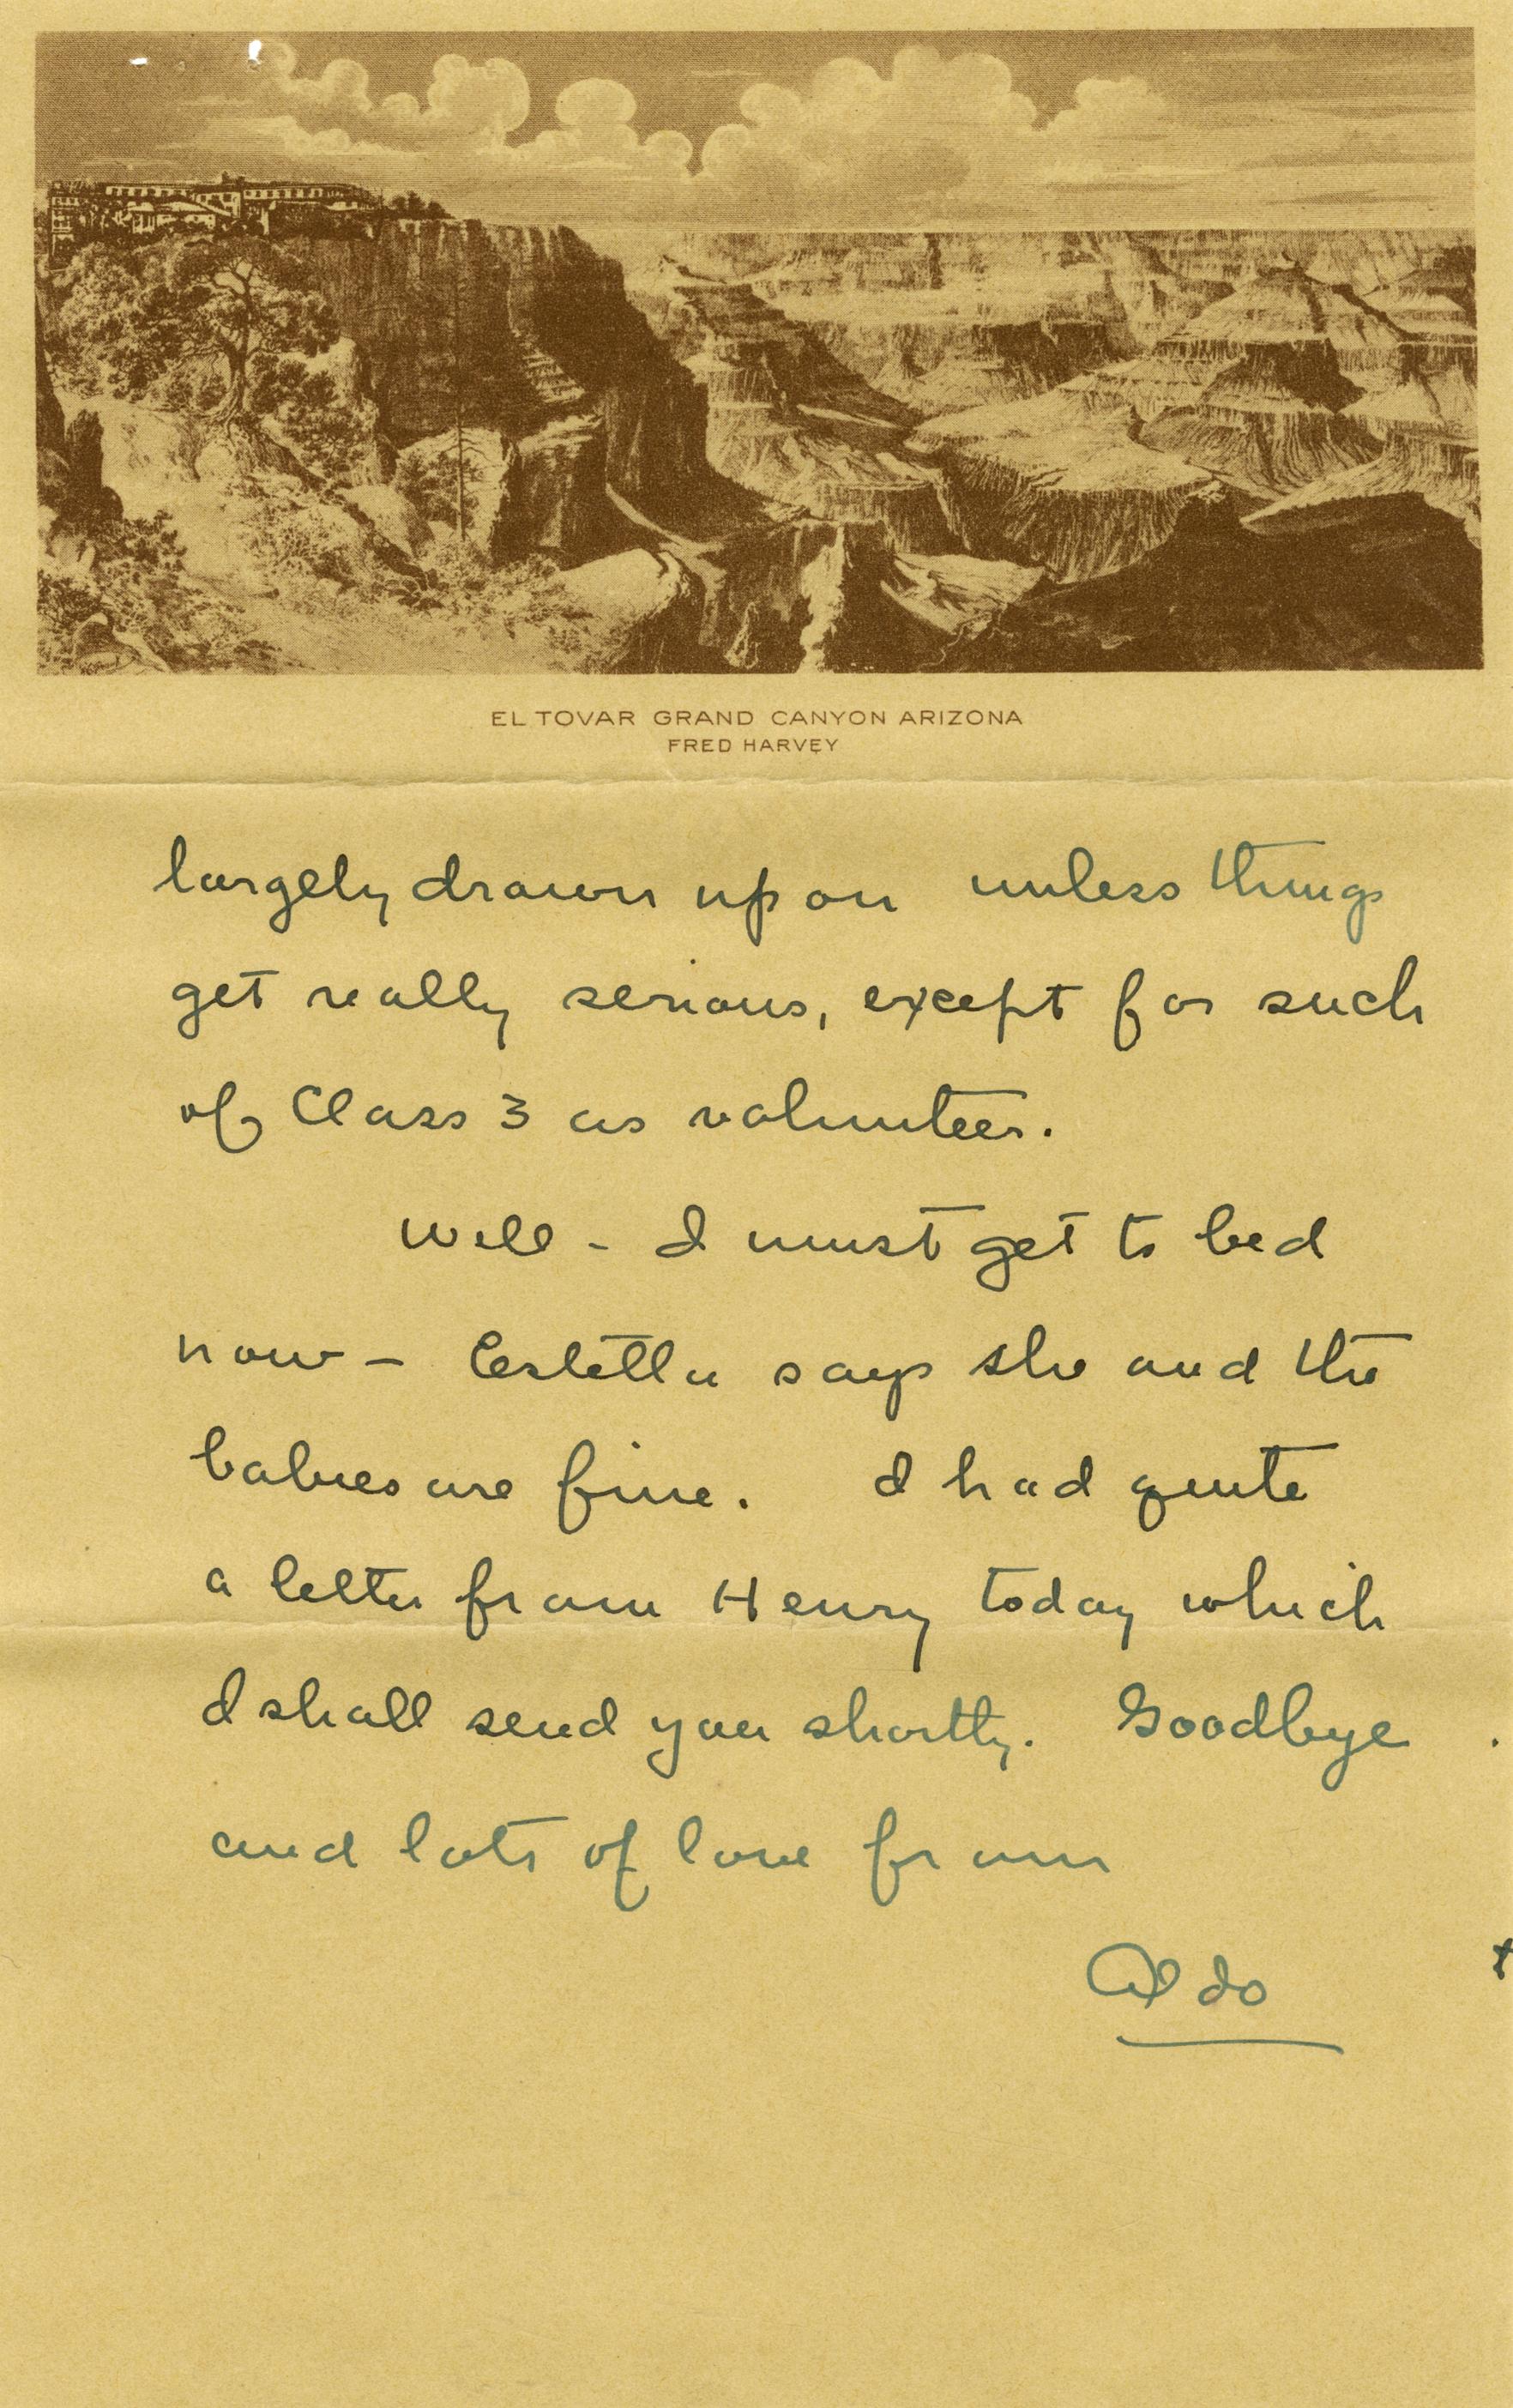 EL TOVAR GRAND CANYON ARIZONA
FRED HARVEY
largely drawn upon unless things
get really serious, except for such
of Class 3 as volunteer.
Well - I must get to bed
now - Estella says she and the
babies are fine. I had quite
a letter from Henry today which
I shall send you shortly. Goodbye
and lots of love from
Aldo